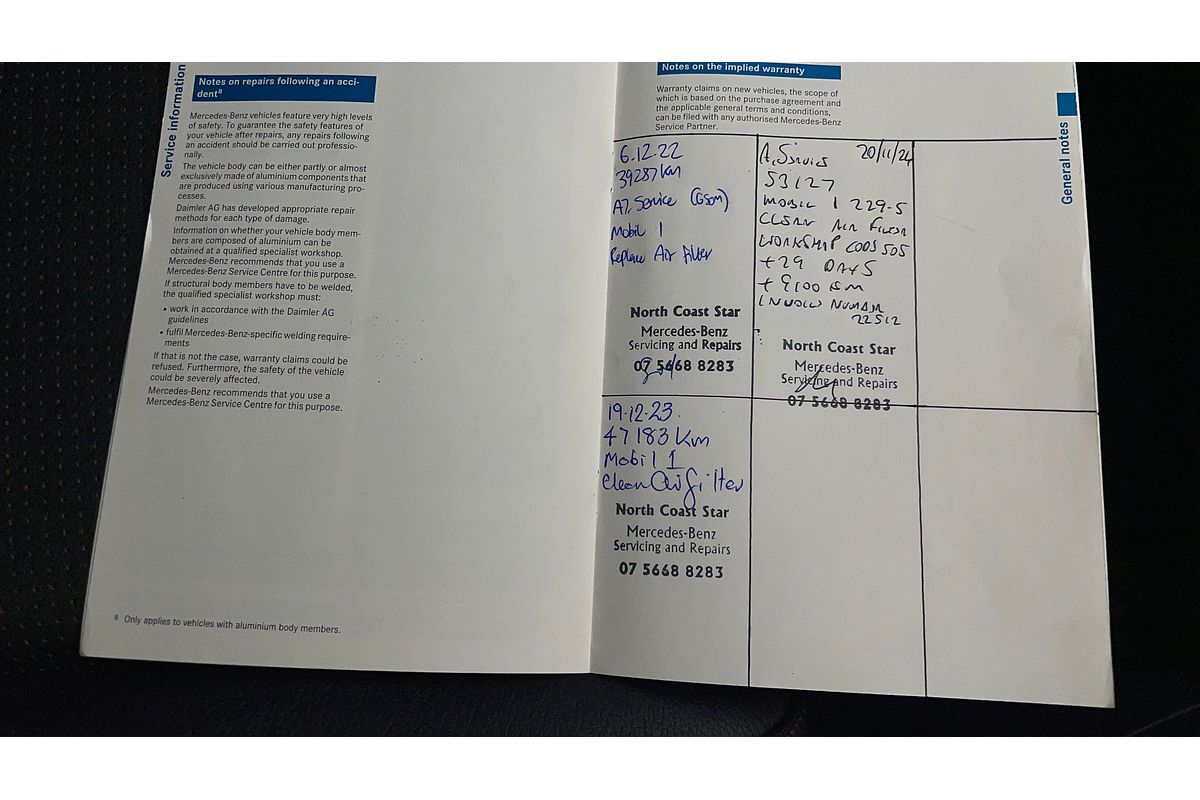 Service information
Notes on repairs following an acci-
dent⁸
Mercedes-Benz vehicles feature very high levels
of safety. To guarantee the safety features of
your vehicle after repairs, any repairs following
an accident should be carried out professio-
nally.
The vehicle body can be either partly or almost
exclusively made of aluminium components that
are produced using various manufacturing pro-
cesses.
Daimler AG has developed appropriate repair
methods for each type of damage.
Information on whether your vehicle body mem-
bers are composed of aluminium can be
obtained at a qualified specialist workshop.
Mercedes-Benz recommends that you use a
Mercedes-Benz Service Centre for this purpose.
If structural body members have to be welded,
the qualified specialist workshop must:
• work in accordance with the Daimler AG
guidelines
• fulfil Mercedes-Benz-specific welding require-
ments
If that is not the case, warranty claims could be
refused. Furthermore, the safety of the vehicle
could be severely affected.
Mercedes-Benz recommends that you use a
Mercedes-Benz Service Centre for this purpose.
⁸ Only applies to vehicles with aluminium body members.
Notes on the implied warranty
Warranty claims on new vehicles, the scope of
which is based on the purchase agreement and
the applicable general terms and conditions,
can be filed with any authorised Mercedes-Benz
Service Partner.
General notes
6.12.22
39287 Km
A7. Service
Mobil 1
Replace Air filter
North Coast Star
Mercedes-Benz
Servicing and Repairs
07 5668 8283
19.12.23.
47183 Km
Mobil 1
Clean Air filter
North Coast Star
Mercedes-Benz
Servicing and Repairs
07 5668 8283
A. Service 20/11/24
53127
MOBIL 1 229-5
CLEAN AIR FILTER
WORKSHOP CODE 505
+29 DAYS
+9100 KM
INVOICE NUMBER
22512
North Coast Star
Mercedes-Benz
Servicing and Repairs
07 5668 8283